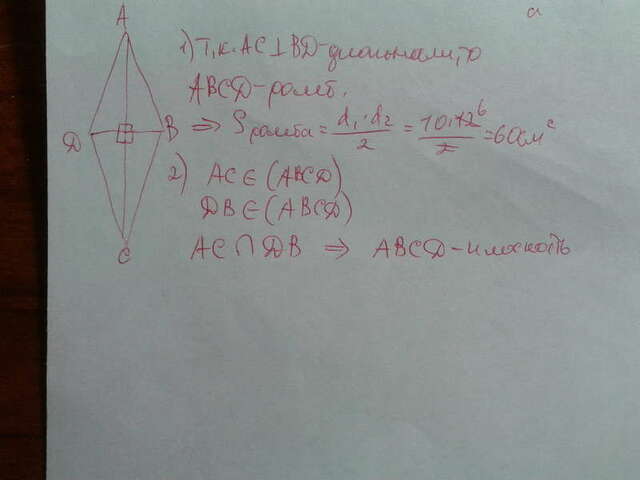 a
A
Д
B
C
1) Т.к. AC ⊥ BD - диагонали, то
ABCД - ромб.
⇒ Sромба = d₁·d₂/2 = 10·12⁶/2 = 60см²
2) AC ∈ (ABCД)
ДB ∈ (ABCД)
AC ∩ ДB ⇒ ABCД - плоскость